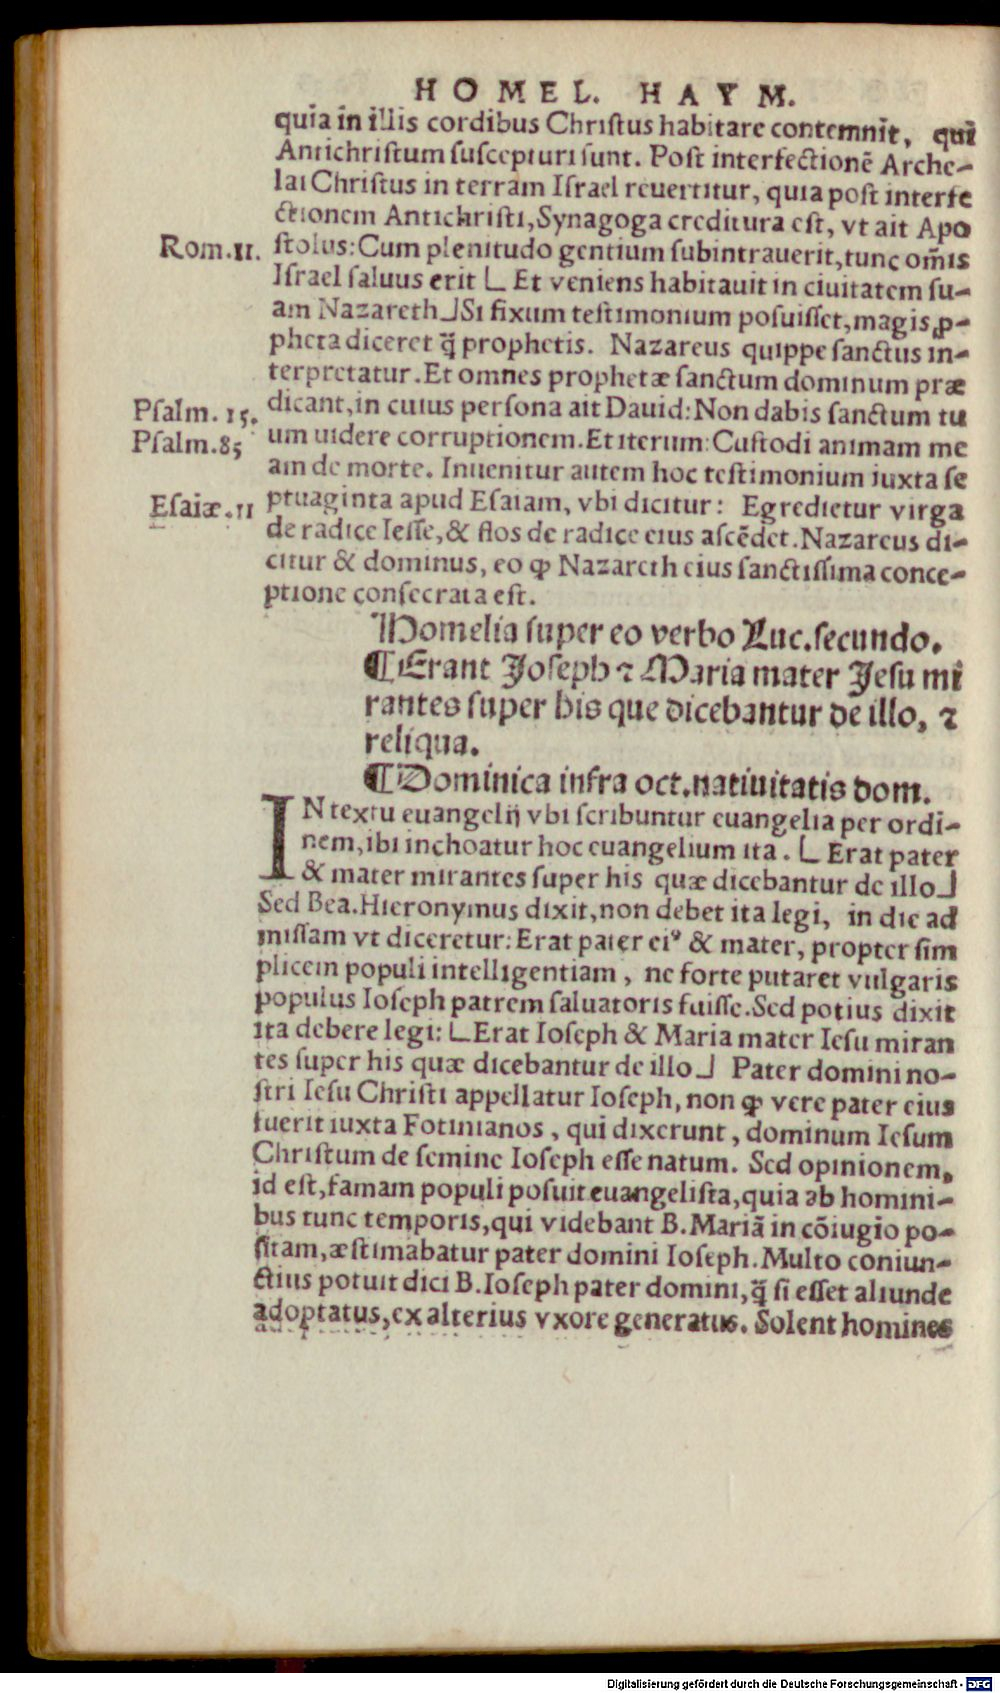 HOMEL. HAYM.
quia in illis cordibus Christus habitare contemnit, qui
Antichristum suscepturi sunt. Post interfectionē Arche-
lai Christus in terram Israel reuertitur, quia post interfe
ctionem Antichristi, Synagoga creditura est, vt ait Apo
Rom.11. stolus: Cum plenitudo gentium subintrauerit, tunc om̄is
Israel saluus erit ⌊ Et veniens habitauit in ciuitatem su-
am Nazareth⌋ Si fixum testimonium posuisset, magis ꝓ-
pheta diceret q̃ prophetis. Nazareus quippe sanctus in-
terpretatur. Et omnes prophetæ sanctum dominum præ
Psalm. 15. dicant, in cuius persona ait Dauid: Non dabis sanctum tu
Psalm.85 um uidere corruptionem. Et iterum: Custodi animam me
am de morte. Inuenitur autem hoc testimonium iuxta se
Esaiæ.11 ptuaginta apud Esaiam, vbi dicitur: Egredietur virga
de radice Iesse, & flos de radice eius ascēdet. Nazareus di-
citur & dominus, eo ꝙ Nazareth eius sanctissima conce-
ptione consecrata est.
Homelia super eo verbo Luc. secundo.
¶ Erant Joseph ⁊ Maria mater Jesu mi
rantes super his que dicebantur de illo, ⁊
reliqua.
¶ Dominica infra oct. natiuitatis dom.
IN textu euangelij vbi scribuntur euangelia per ordi-
nem, ibi inchoatur hoc euangelium ita. ⌊ Erat pater
& mater mirantes super his quæ dicebantur de illo⌋
Sed Bea. Hieronymus dixit, non debet ita legi, in die ad
missam vt diceretur: Erat pater eiꝰ & mater, propter sim
plicem populi intelligentiam, ne forte putaret vulgaris
populus Ioseph patrem saluatoris fuisse. Sed potius dixit
ita debere legi: ⌊Erat Ioseph & Maria mater Iesu miran
tes super his quæ dicebantur de illo⌋ Pater domini no-
stri Iesu Christi appellatur Ioseph, non ꝙ vere pater eius
fuerit iuxta Fotinianos, qui dixerunt, dominum Iesum
Christum de semine Ioseph esse natum. Sed opinionem,
id est, famam populi posuit euangelista, quia ab homini-
bus tunc temporis, qui videbant B. Mariã in cõiugio po-
sitam, æstimabatur pater domini Ioseph. Multo coniun-
ctius potuit dici B. Ioseph pater domini, q̃ si esset aliunde
adoptatus, ex alterius vxore generatus. Solent homines
Digitalisierung gefördert durch die Deutsche Forschungsgemeinschaft - DFG